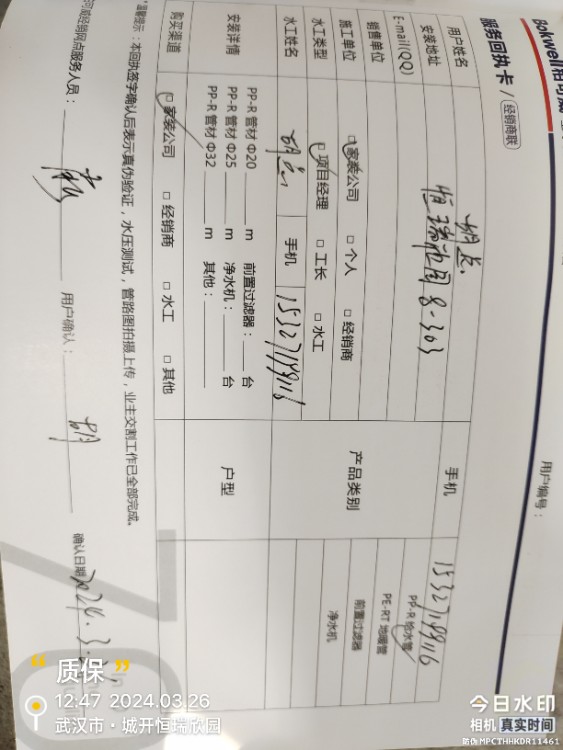 Bokwell柏可威
用户编号：
服务回执卡 / 经销商联
用户姓名 胡总 手机 15327199116
安装地址 恒瑞花园 8-303
E-mail(QQ)
产品类别 PP-R 给水管
PE-RT 地暖管
前置过滤器
净水机
销售单位
施工单位 □家装公司 □个人 □经销商
水工类型 □项目经理 □工长 □水工
水工姓名 胡总 手机 15327199116
安装详情 PP-R 管材 Φ20 ____ m 前置过滤器：____ 台
PP-R 管材 Φ25 ____ m 净水机：____ 台
PP-R 管材 Φ32 ____ m 其他：____
户型
购买渠道 □家装公司 □经销商 □水工 □其他
温馨提示：本回执签字确认后表示真伪验证，水压测试，管路图拍摄上传，业主交割工作已全部完成。
可威经销网点服务人员： 用户确认：胡 确认日期 2024.3.
“质保”
12:47 2024.03.26
武汉市·城开恒瑞欣园
今日水印
相机 真实时间
防伪 MPCTHHKDR11461